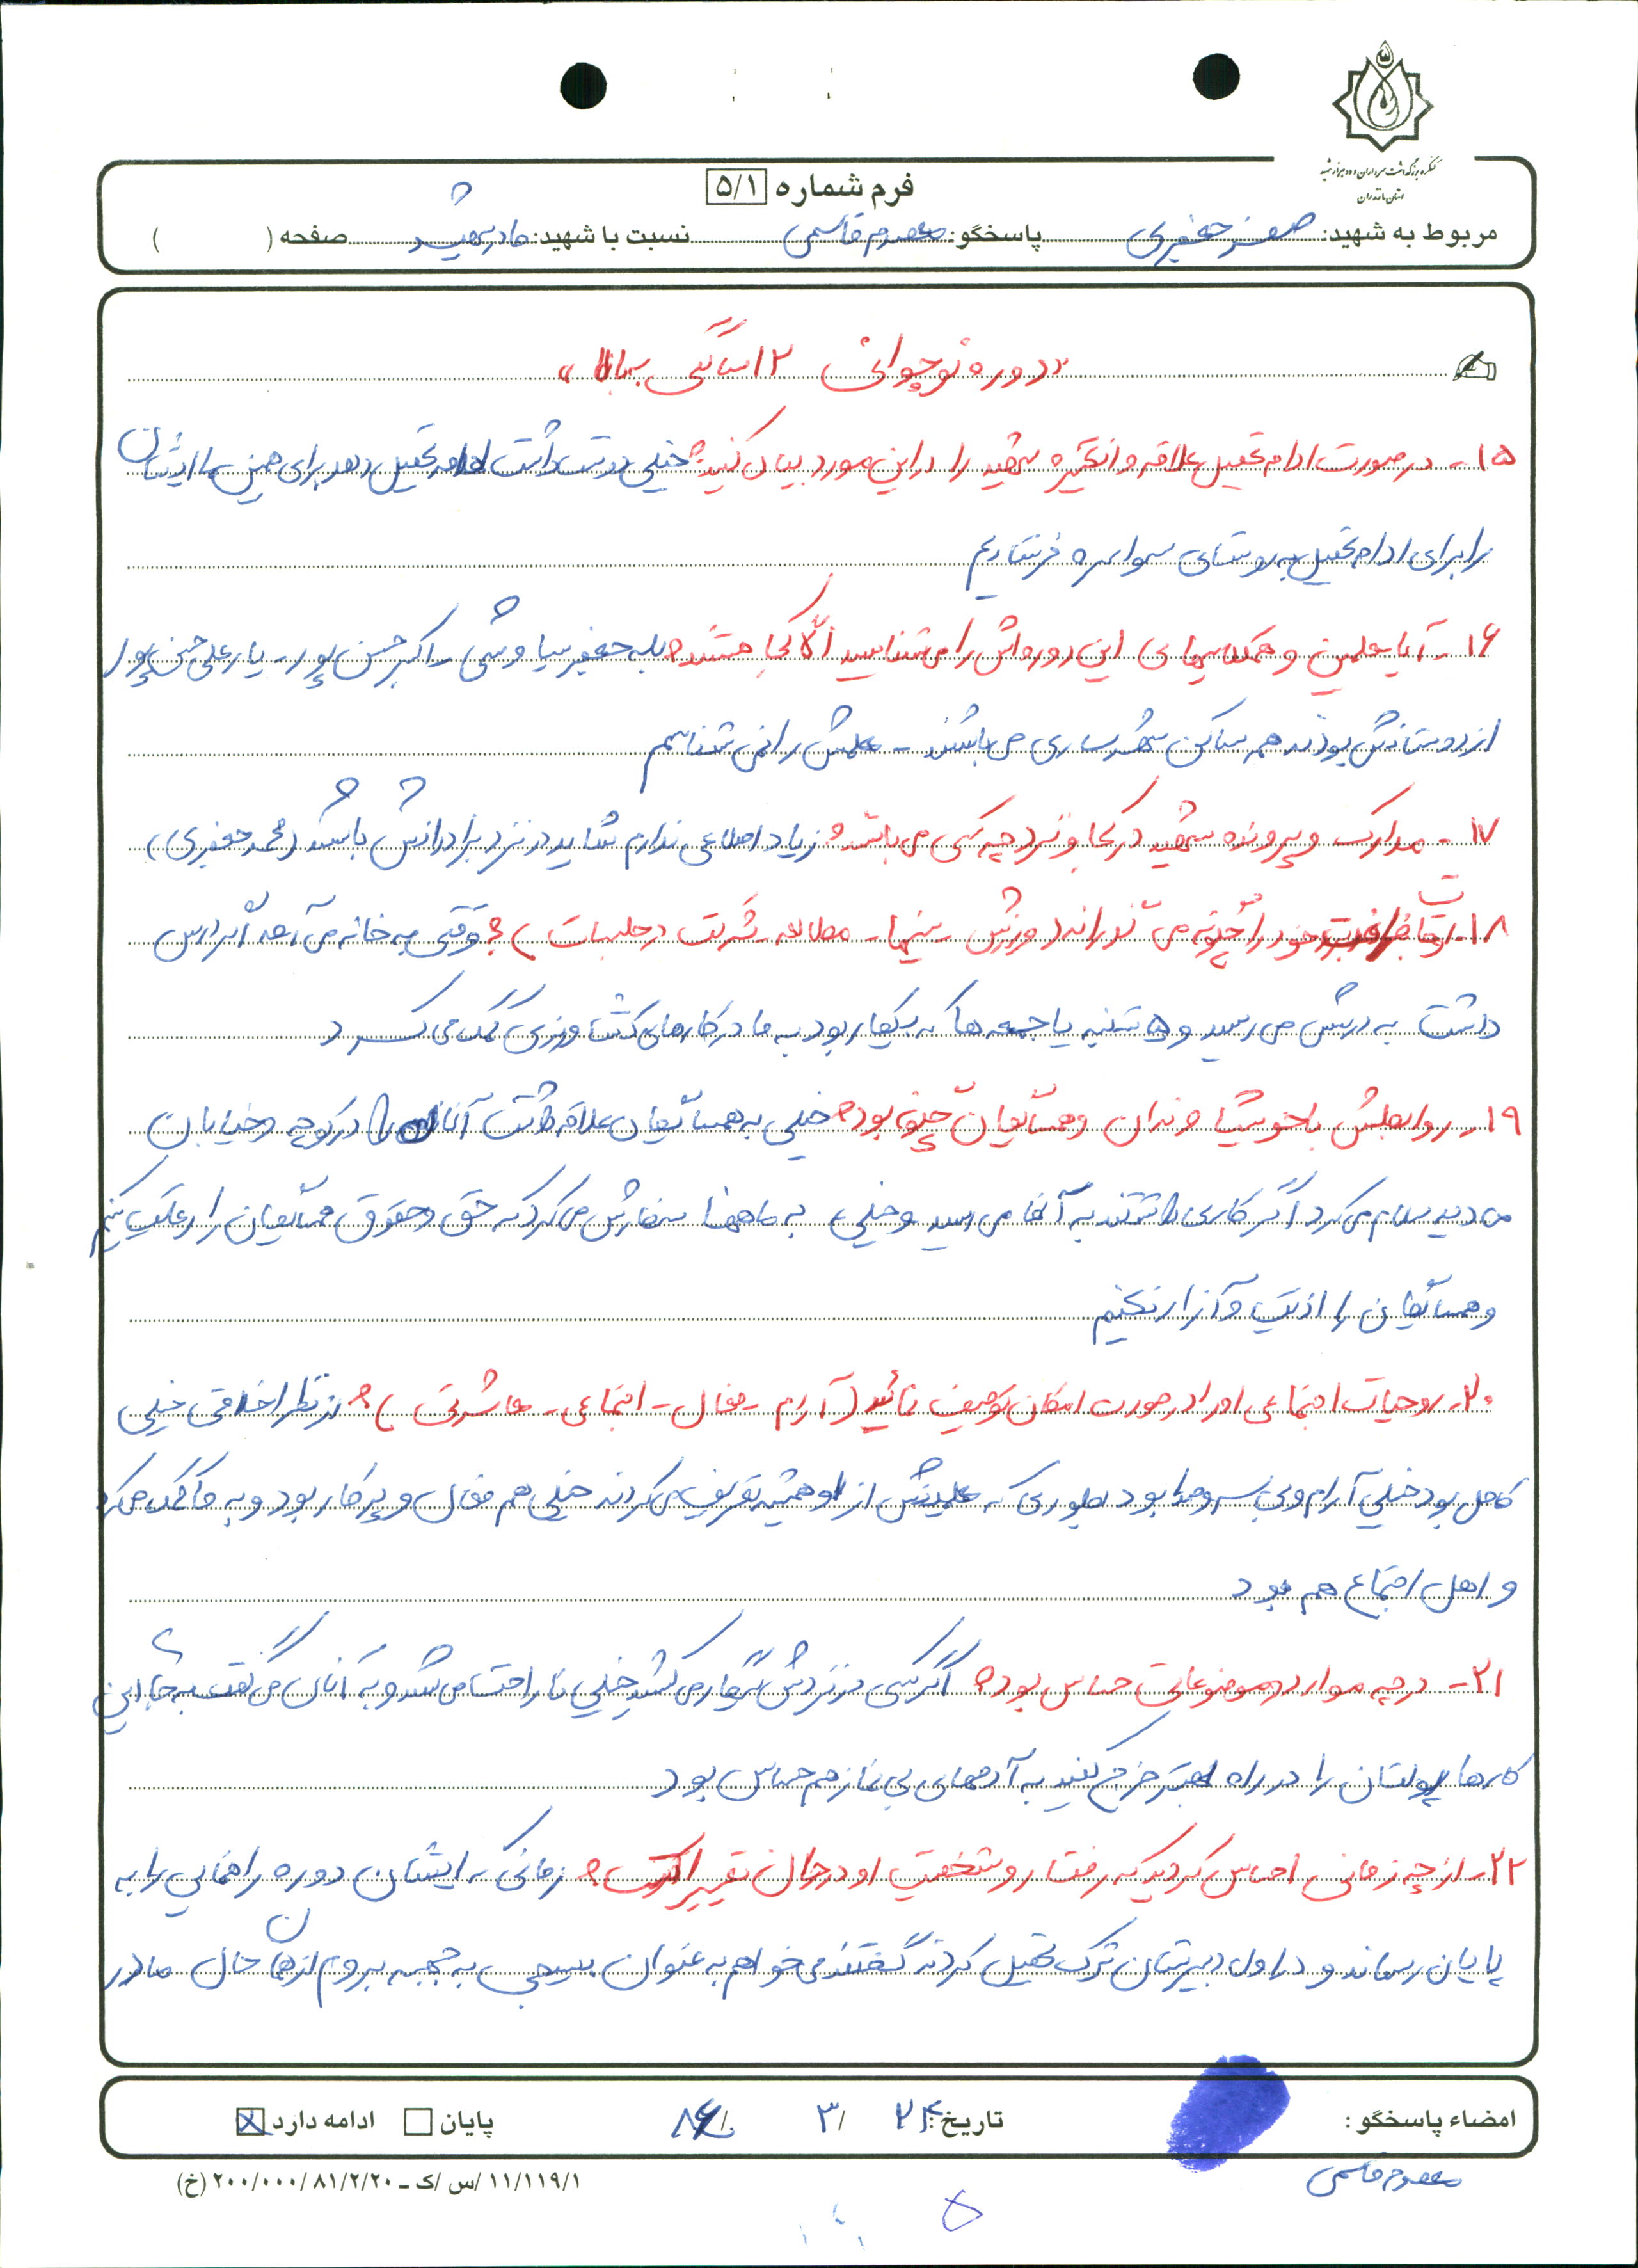 کنگره بزرگداشت سرداران و ده هزار شهید
استان مازندران
فرم شماره ۵/۱
مربوط به شهید: صفر جعفری پاسخگو: معصومه قاسمی نسبت با شهید: مادر شهید صفحه ( )
«دوره نوجوانی ۱۲ سالگی ببالا»
۱۵- در صورت ادامه تحصیل علاقه و انگیزه شهید را در این مورد بیان کنید؟ خیلی دوست داشت ادامه تحصیل دهد برای همین ما ایشان
را برای ادامه تحصیل به روستای سوادسره فرستادیم
۱۶- آیا معلمین و همکلاسیهای این دوره اش را می شناسید الآن کجا هستند؟ بله جعفر سیاوشی - اکبر حسن پور - یار علی حسن پور
از دوستانش بودند همه ساکن شهر ساری می باشند - معلمش را نمی شناسم
۱۷- مدارک و پرونده شهید در کجا و نزد چه کسی می باشد؟ زیاد اطلاعی ندارم شاید در نزد برادرانش باشد (محمد جعفری)
۱۸- اوقات فراغت خود را چگونه می گذراند (ورزش - سینما - مطالعه - شرکت در جلسات)؟ وقتی به خانه می آمد اگر درس
داشت به درسش می رسید و ۵ شنبه یا جمعه ها که بیکار بود به ما در کارهای کشاورزی کمک می کرد
۱۹- روابطش با خویشاوندان و همسایگان چگونه بود؟ خیلی به همسایگان علاقه داشت آنان را در کوچه و خیابان
می دید سلام می کرد اگر کاری داشتند به آنها می رسید و خیلی به ماها سفارش می کرد که حق و حقوق همسایگان را رعایت کنیم
و همسایگان را اذیت و آزار نکنیم
۲۰- روحیات اجتماعی او را در صورت امکان توصیف نمائید (آرام - فعال - اجتماعی - معاشرتی)؟ از نظر اخلاقی خیلی
کامل بود خیلی آرام و بی سروصدا بود بطوری که معلمینش از او همیشه تعریف می کردند خیلی هم فعال و پرکار بود و به ما کمک می کرد
و اهل اجتماع هم بود
۲۱- در چه موارد و موضوعاتی حساس بود؟ اگر کسی در نزدش سیگار می کشید خیلی ناراحت می شد و به آنان می گفت به جای این
کارها پولتان را در راه بهتر خرج کنید به آدمهای بی نماز هم حساس بود
۲۲- از چه زمانی احساس کردید که رفتار و شخصیت او در حال تغییر است؟ زمانی که ایشان دوره راهنمایی را به
پایان رساند و در اول دبیرستان ترک تحصیل کردند گفتند می خواهم به عنوان بسیجی به جبهه بروم از همان حال ما در
امضاء پاسخگو: تاریخ: ۲۴ / ۳ / ۸۶ پایان ادامه دارد
معصومه قاسمی
۱۱/۱۱۹/۱ /س /ک - ۲۰۰/۰۰۰/۸۱/۲/۲۰ (خ)
۵